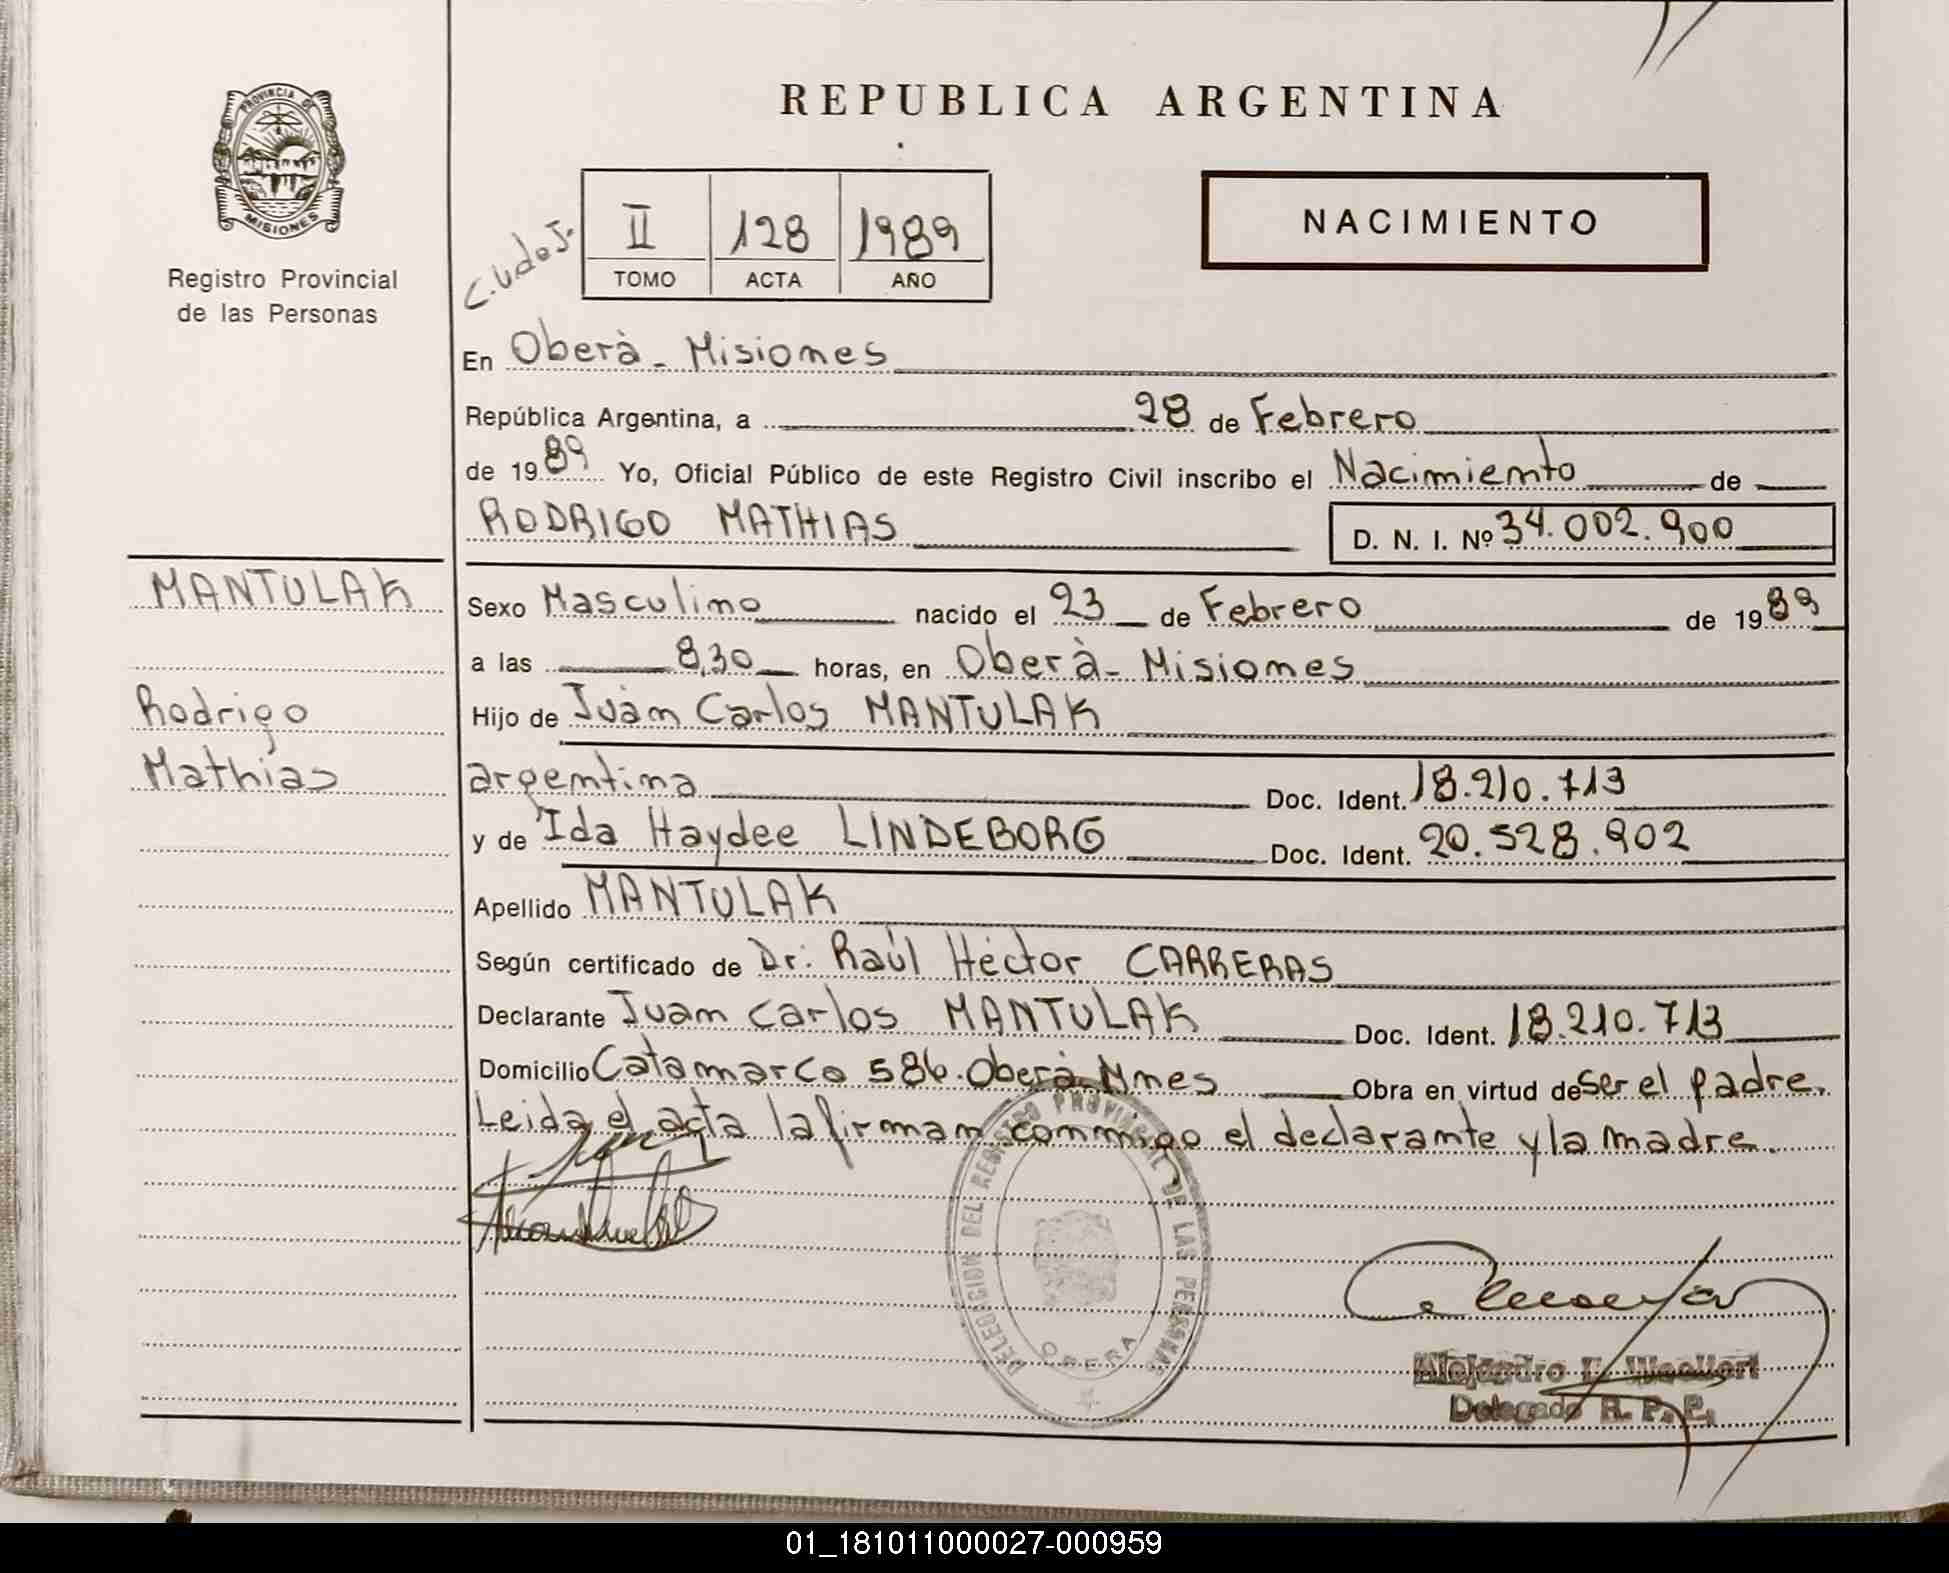 PROVINCIA DE
MISIONES
Registro Provincial
de las Personas
REPUBLICA ARGENTINA
NACIMIENTO
II 128 1989
TOMO ACTA AÑO
En Oberà - Misiones
República Argentina, a 28 de Febrero
de 1989 Yo, Oficial Público de este Registro Civil inscribo el Nacimiento de
RODRIGO MATHIAS D. N. I. Nº 34.002.900
MANTULAK
Rodrigo
Mathias
Sexo Masculino nacido el 23 de Febrero de 1989
a las 8,30 horas, en Oberà - Misiones
Hijo de Juan Carlos MANTULAK
argentina Doc. Ident. 18.210.713
y de Ida Haydee LINDEBORG Doc. Ident. 20.528.902
Apellido MANTULAK
Según certificado de Dr: Raúl Héctor CARRERAS
Declarante Juan Carlos MANTULAK Doc. Ident. 18.210.713
Domicilio Catamarca 586. Oberà Mnes Obra en virtud de ser el padre.
Leida el acta la firman conmigo el declarante y la madre.
DELEGACION DEL REGISTRO PROVINCIAL DE LAS PERSONAS
OBERA
Alejandro
Delegado R. P. P.
01_181011000027-000959